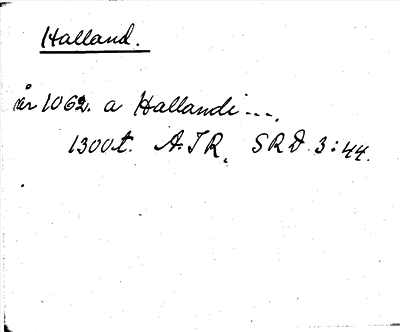 Halland.
år 1062. a Hallandi ---.
1300t. A.I R. SRD. 3:44.